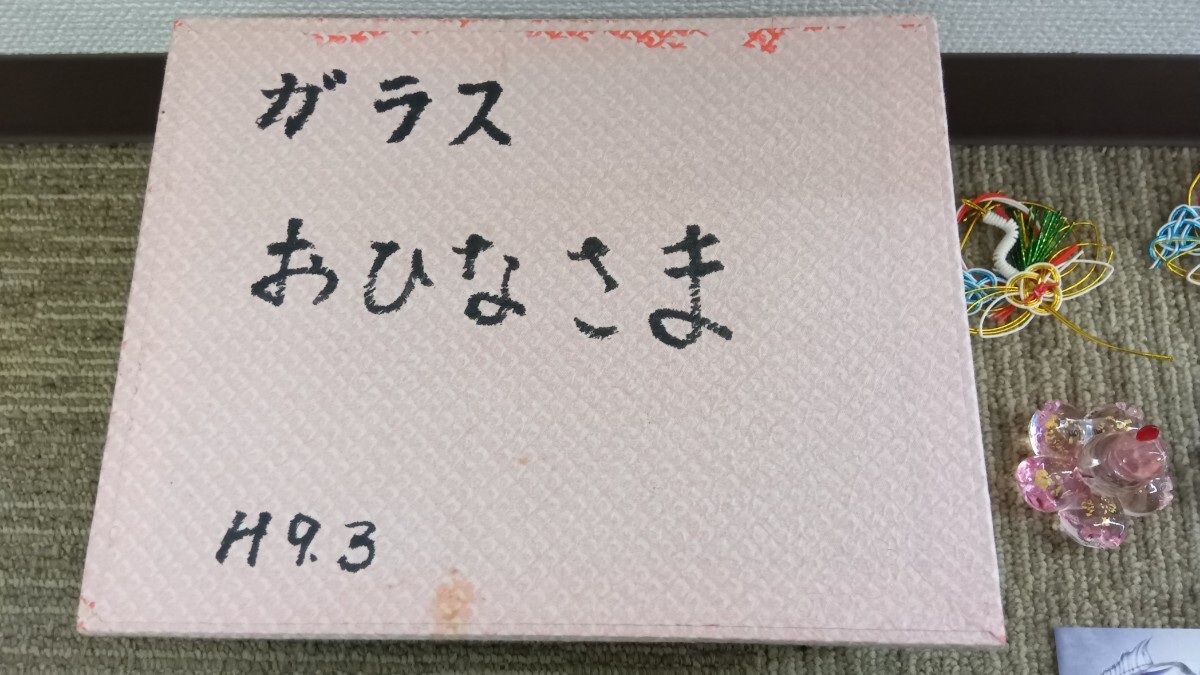 ガラス
おひなさま
H9.3